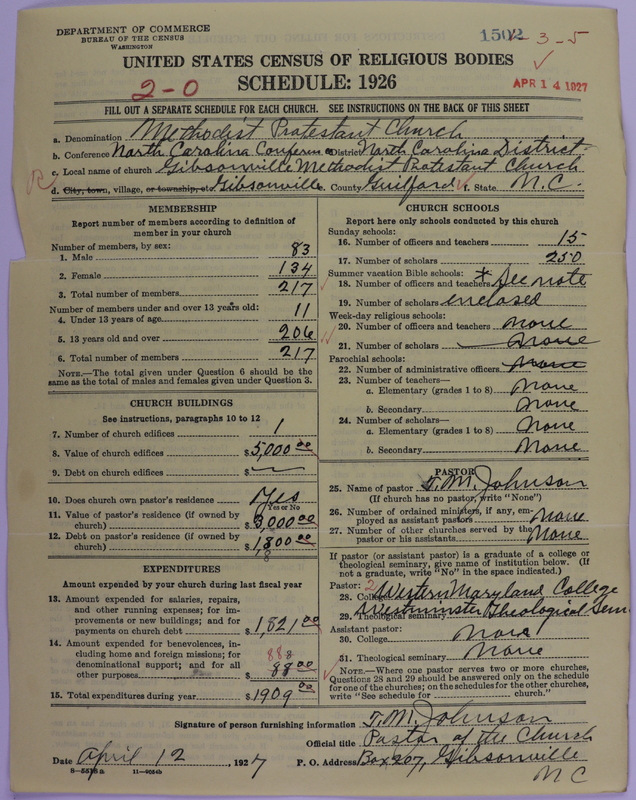 DEPARTMENT OF COMMERCE
BUREAU OF THE CENSUS
WASHINGTON
1502 - 3 - 5
UNITED STATES CENSUS OF RELIGIOUS BODIES
2-0
SCHEDULE: 1926
APR 14 1927
FILL OUT A SEPARATE SCHEDULE FOR EACH CHURCH. SEE INSTRUCTIONS ON THE BACK OF THIS SHEET
a. Denomination Methodist Protestant Church
b. Conference North Carolina Conference or District North Carolina District
c. Local name of church Gibsonville Methodist Protestant Church
d. City, town, village, or township, etc. Gibsonville e. County Guilford f. State N.C.
MEMBERSHIP
Report number of members according to definition of
member in your church
Number of members, by sex:
1. Male 83
2. Female 134
3. Total number of members 217
Number of members under and over 13 years old:
4. Under 13 years of age 11
5. 13 years old and over 206
6. Total number of members 217
NOTE.—The total given under Question 6 should be
the same as the total of males and females given under Question 3.
CHURCH BUILDINGS
See instructions, paragraphs 10 to 12
7. Number of church edifices 1
8. Value of church edifices $5,000 00
9. Debt on church edifices $
10. Does church own pastor's residence Yes
Yes or No
11. Value of pastor's residence (if owned by
church) $3,000 00
12. Debt on pastor's residence (if owned by
church) $1,800 00
8
EXPENDITURES
Amount expended by your church during last fiscal year
13. Amount expended for salaries, repairs,
and other running expenses; for im-
provements or new buildings; and for
payments on church debt $1,821 00
14. Amount expended for benevolences, in-
cluding home and foreign missions; for
denominational support; and for all
other purposes $88 00
88
15. Total expenditures during year $1909 00
CHURCH SCHOOLS
Report here only schools conducted by this church
Sunday schools:
16. Number of officers and teachers 15
17. Number of scholars 250
Summer vacation Bible schools:
18. Number of officers and teachers * See note
19. Number of scholars enclosed
Week-day religious schools:
20. Number of officers and teachers None
21. Number of scholars None
Parochial schools:
22. Number of administrative officers None
23. Number of teachers—
a. Elementary (grades 1 to 8) None
b. Secondary None
24. Number of scholars—
a. Elementary (grades 1 to 8) None
b. Secondary None
PASTOR
25. Name of pastor T. M. Johnson
(If church has no pastor, write "None")
26. Number of ordained ministers, if any, em-
ployed as assistant pastors None
27. Number of other churches served by the
pastor or his assistants None
If pastor (or assistant pastor) is a graduate of a college or
theological seminary, give name of institution below. (If
not a graduate, write "No" in the space indicated.)
Pastor: 2
28. College Western Maryland College
29. Theological seminary Westminster Theological Sem
Assistant pastor:
30. College None
31. Theological seminary None
NOTE.—Where one pastor serves two or more churches,
Questions 28 and 29 should be answered only on the schedule
for one of the churches; on the schedules for the other churches,
write "See schedule for church."
Signature of person furnishing information T. M. Johnson
Official title Pastor of the Church
Date April 12, 1927 P. O. Address Box 207, Gibsonville
N C
8—5518 b 11—9054b